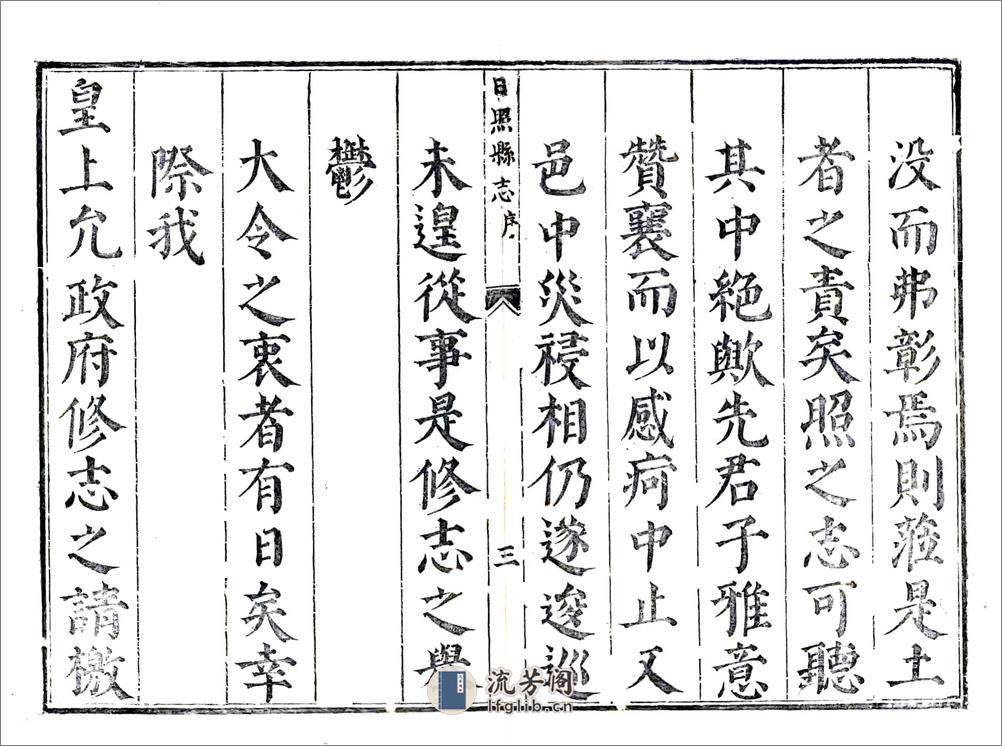 没而弗彰焉則蒞是土
者之責矣照之志可聽
其中絕歟先君子雅意
贊襄而以感疴中止又
邑中災祲相仍遂逡巡
未遑從事是修志之舉
鬱
大令之衷者有日矣幸
際我
皇上允政府修志之請檄
日照縣志
序
三
流芳阁
lfglib.cn